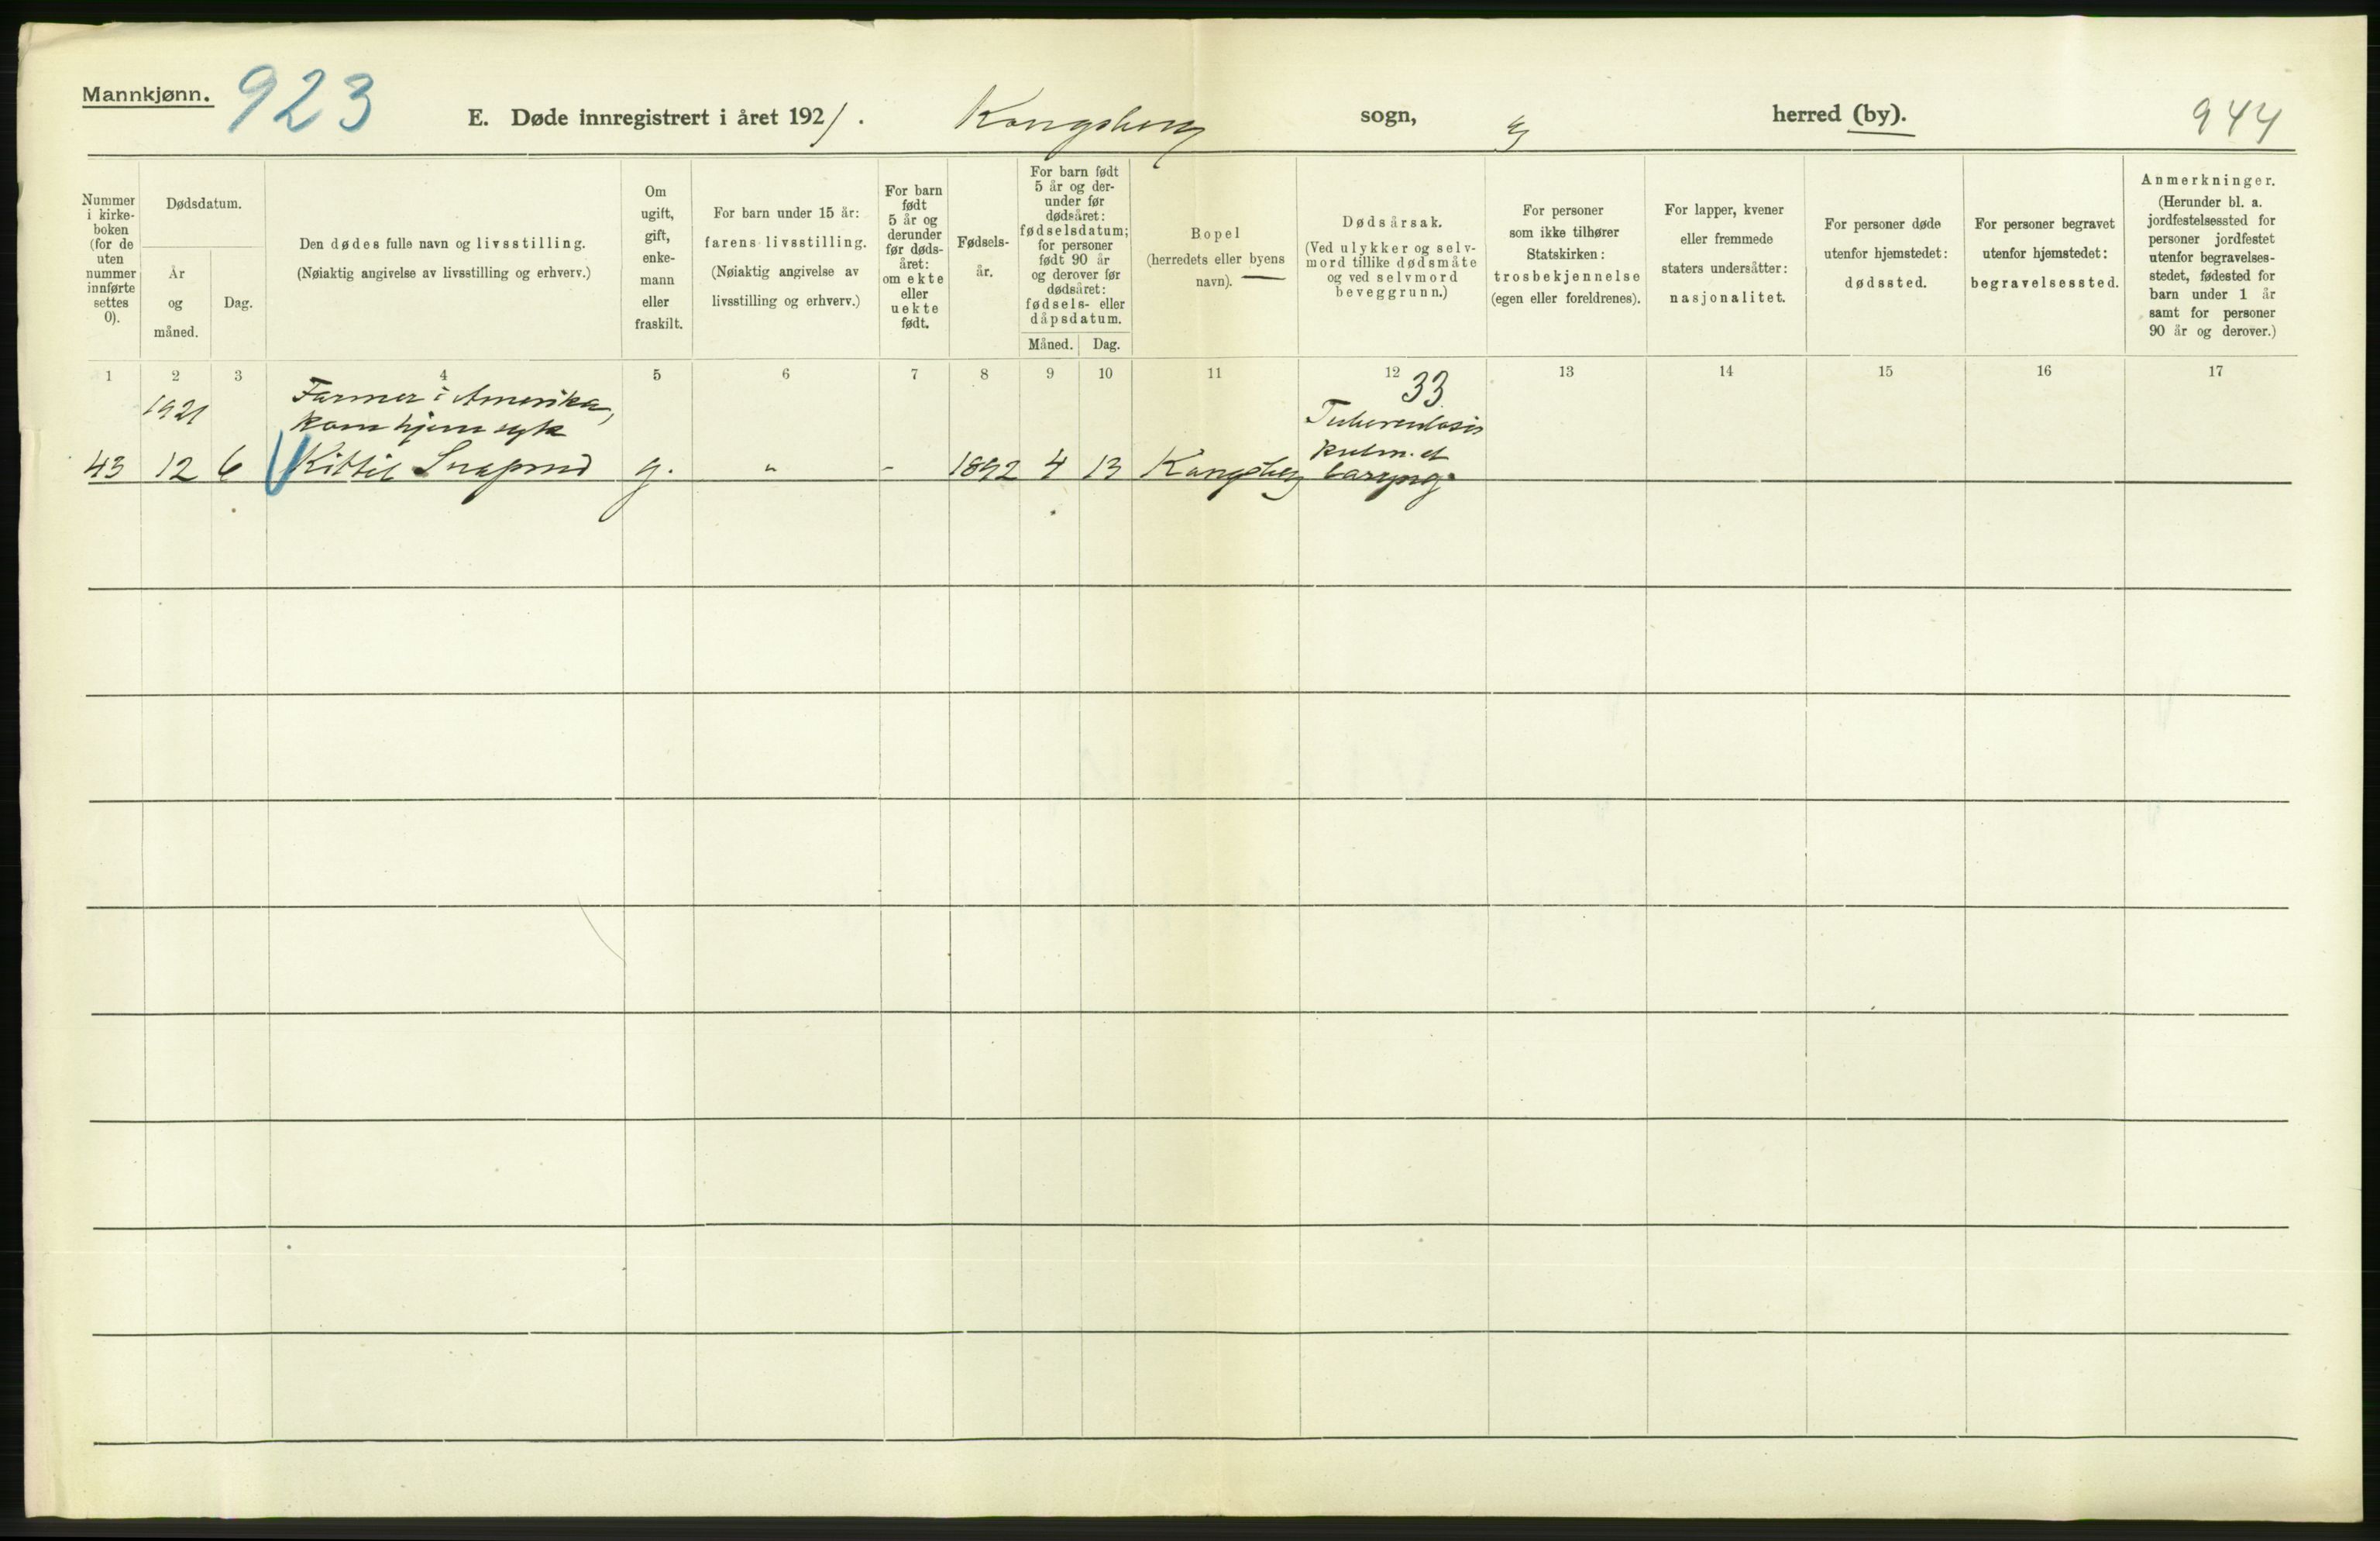 Mannkjønn. 923
E. Døde innregistrert i året 1921. Kongsberg sogn, herred (by). 944
Nummer
i kirke-
boken
(for de
uten
nummer
innførte
settes
0).
Dødsdatum.
År
og
måned.
Dag.
Den dødes fulle navn og livsstilling.
(Nøiaktig angivelse av livsstilling og erhverv.)
Om
ugift,
gift,
enke-
mann
eller
fraskilt.
For barn under 15 år:
farens livsstilling.
(Nøiaktig angivelse av
livsstilling og erhverv.)
For barn
født
5 år og
derunder
før døds-
året:
om ekte
eller
uekte
født.
Fødsels-
år.
For barn født
5 år og der-
under før
dødsåret:
fødselsdatum;
for personer
født 90 år
og derover før
dødsåret:
fødsels- eller
dåpsdatum.
Måned. Dag.
Bopel
(herredets eller byens
navn).
Dødsårsak.
(Ved ulykker og selv-
mord tillike dødsmåte
og ved selvmord
beveggrunn.)
For personer
som ikke tilhører
Statskirken:
trosbekjennelse
(egen eller foreldrenes).
For lapper, kvener
eller fremmede
staters undersåtter:
nasjonalitet.
For personer døde
utenfor hjemstedet:
dødssted.
For personer begravet
utenfor hjemstedet:
begravelsessted.
Anmerkninger.
(Herunder bl. a.
jordfestelsessted for
personer jordfestet
utenfor begravelses-
stedet, fødested for
barn under 1 år
samt for personer
90 år og derover.)
1 2 3 4 5 6 7 8 9 10 11 12 13 14 15 16 17
33
1921 Farmer i Amerika, Tuberculosis
kom hjem syk pulm. et
43 12 6 Kittil g. " - 1892 4 13 Kongsberg laryng.